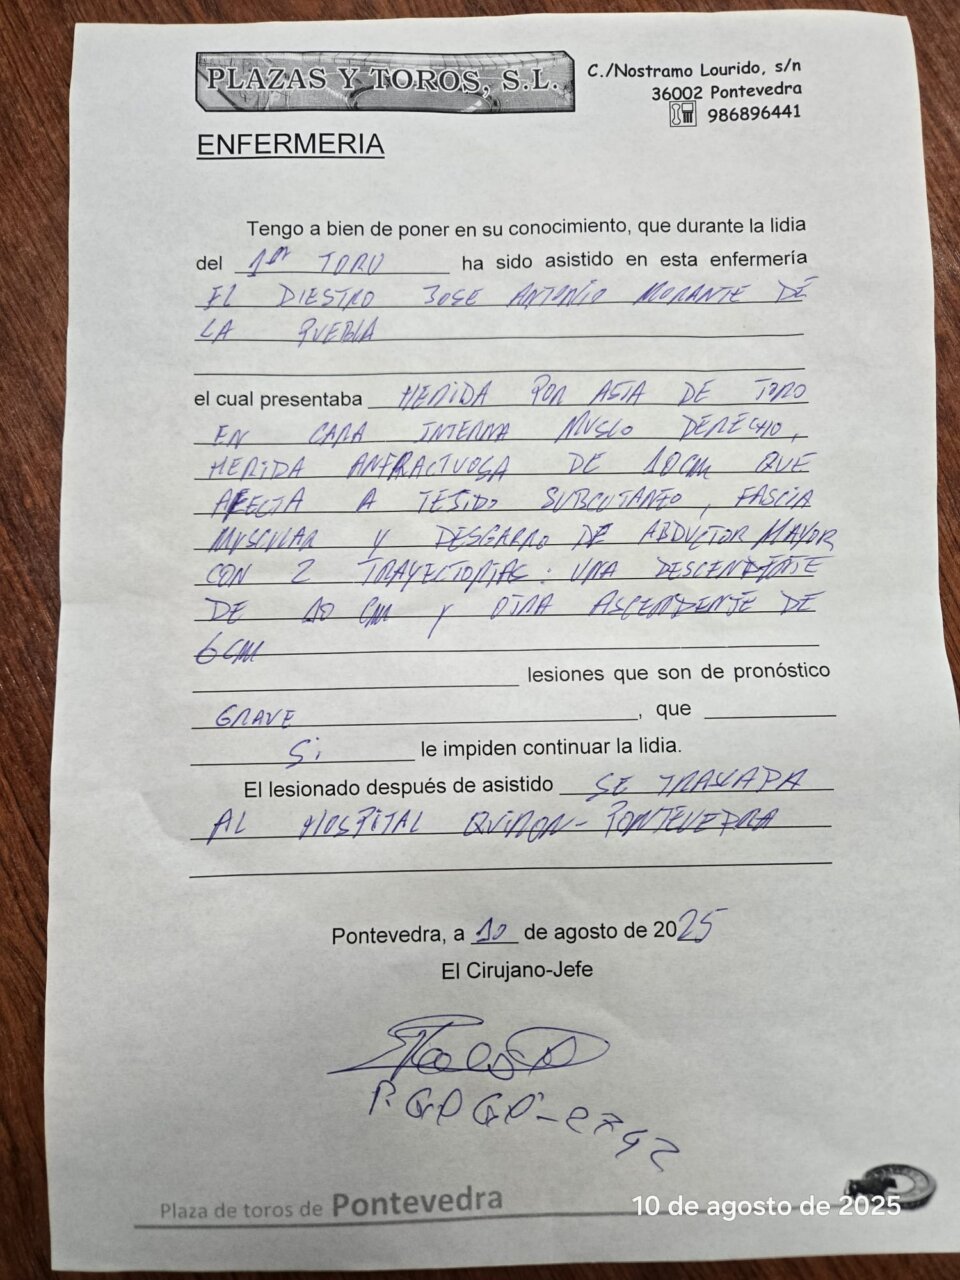 PLAZAS Y TOROS, S.L.
C./Nostramo Lourido, s/n
36002 Pontevedra
986896441
ENFERMERIA
Tengo a bien de poner en su conocimiento, que durante la lidia
del 1er TORO ha sido asistido en esta enfermería
EL DIESTRO JOSE ANTONIO MORANTE DE
LA PUEBLA
el cual presentaba HERIDA POR ASTA DE TORO
EN CARA INTERNA MUSLO DERECHO,
HERIDA ANFRACTUOSA DE 10 CM QUE
AFECTA A TEJIDO SUBCUTANEO, FASCIA
MUSCULAR Y DESGARRO DE ABDUCTOR MAYOR
CON 2 TRAYECTORIAS: UNA DESCENDENTE
DE 10 CM Y OTRA ASCENDENTE DE
6 CM
lesiones que son de pronóstico
GRAVE, que
Si le impiden continuar la lidia.
El lesionado después de asistido SE TRASLADA
AL HOSPITAL QUIRON-PONTEVEDRA
Pontevedra, a 10 de agosto de 2025
El Cirujano-Jefe
Plaza de toros de Pontevedra
10 de agosto de 2025